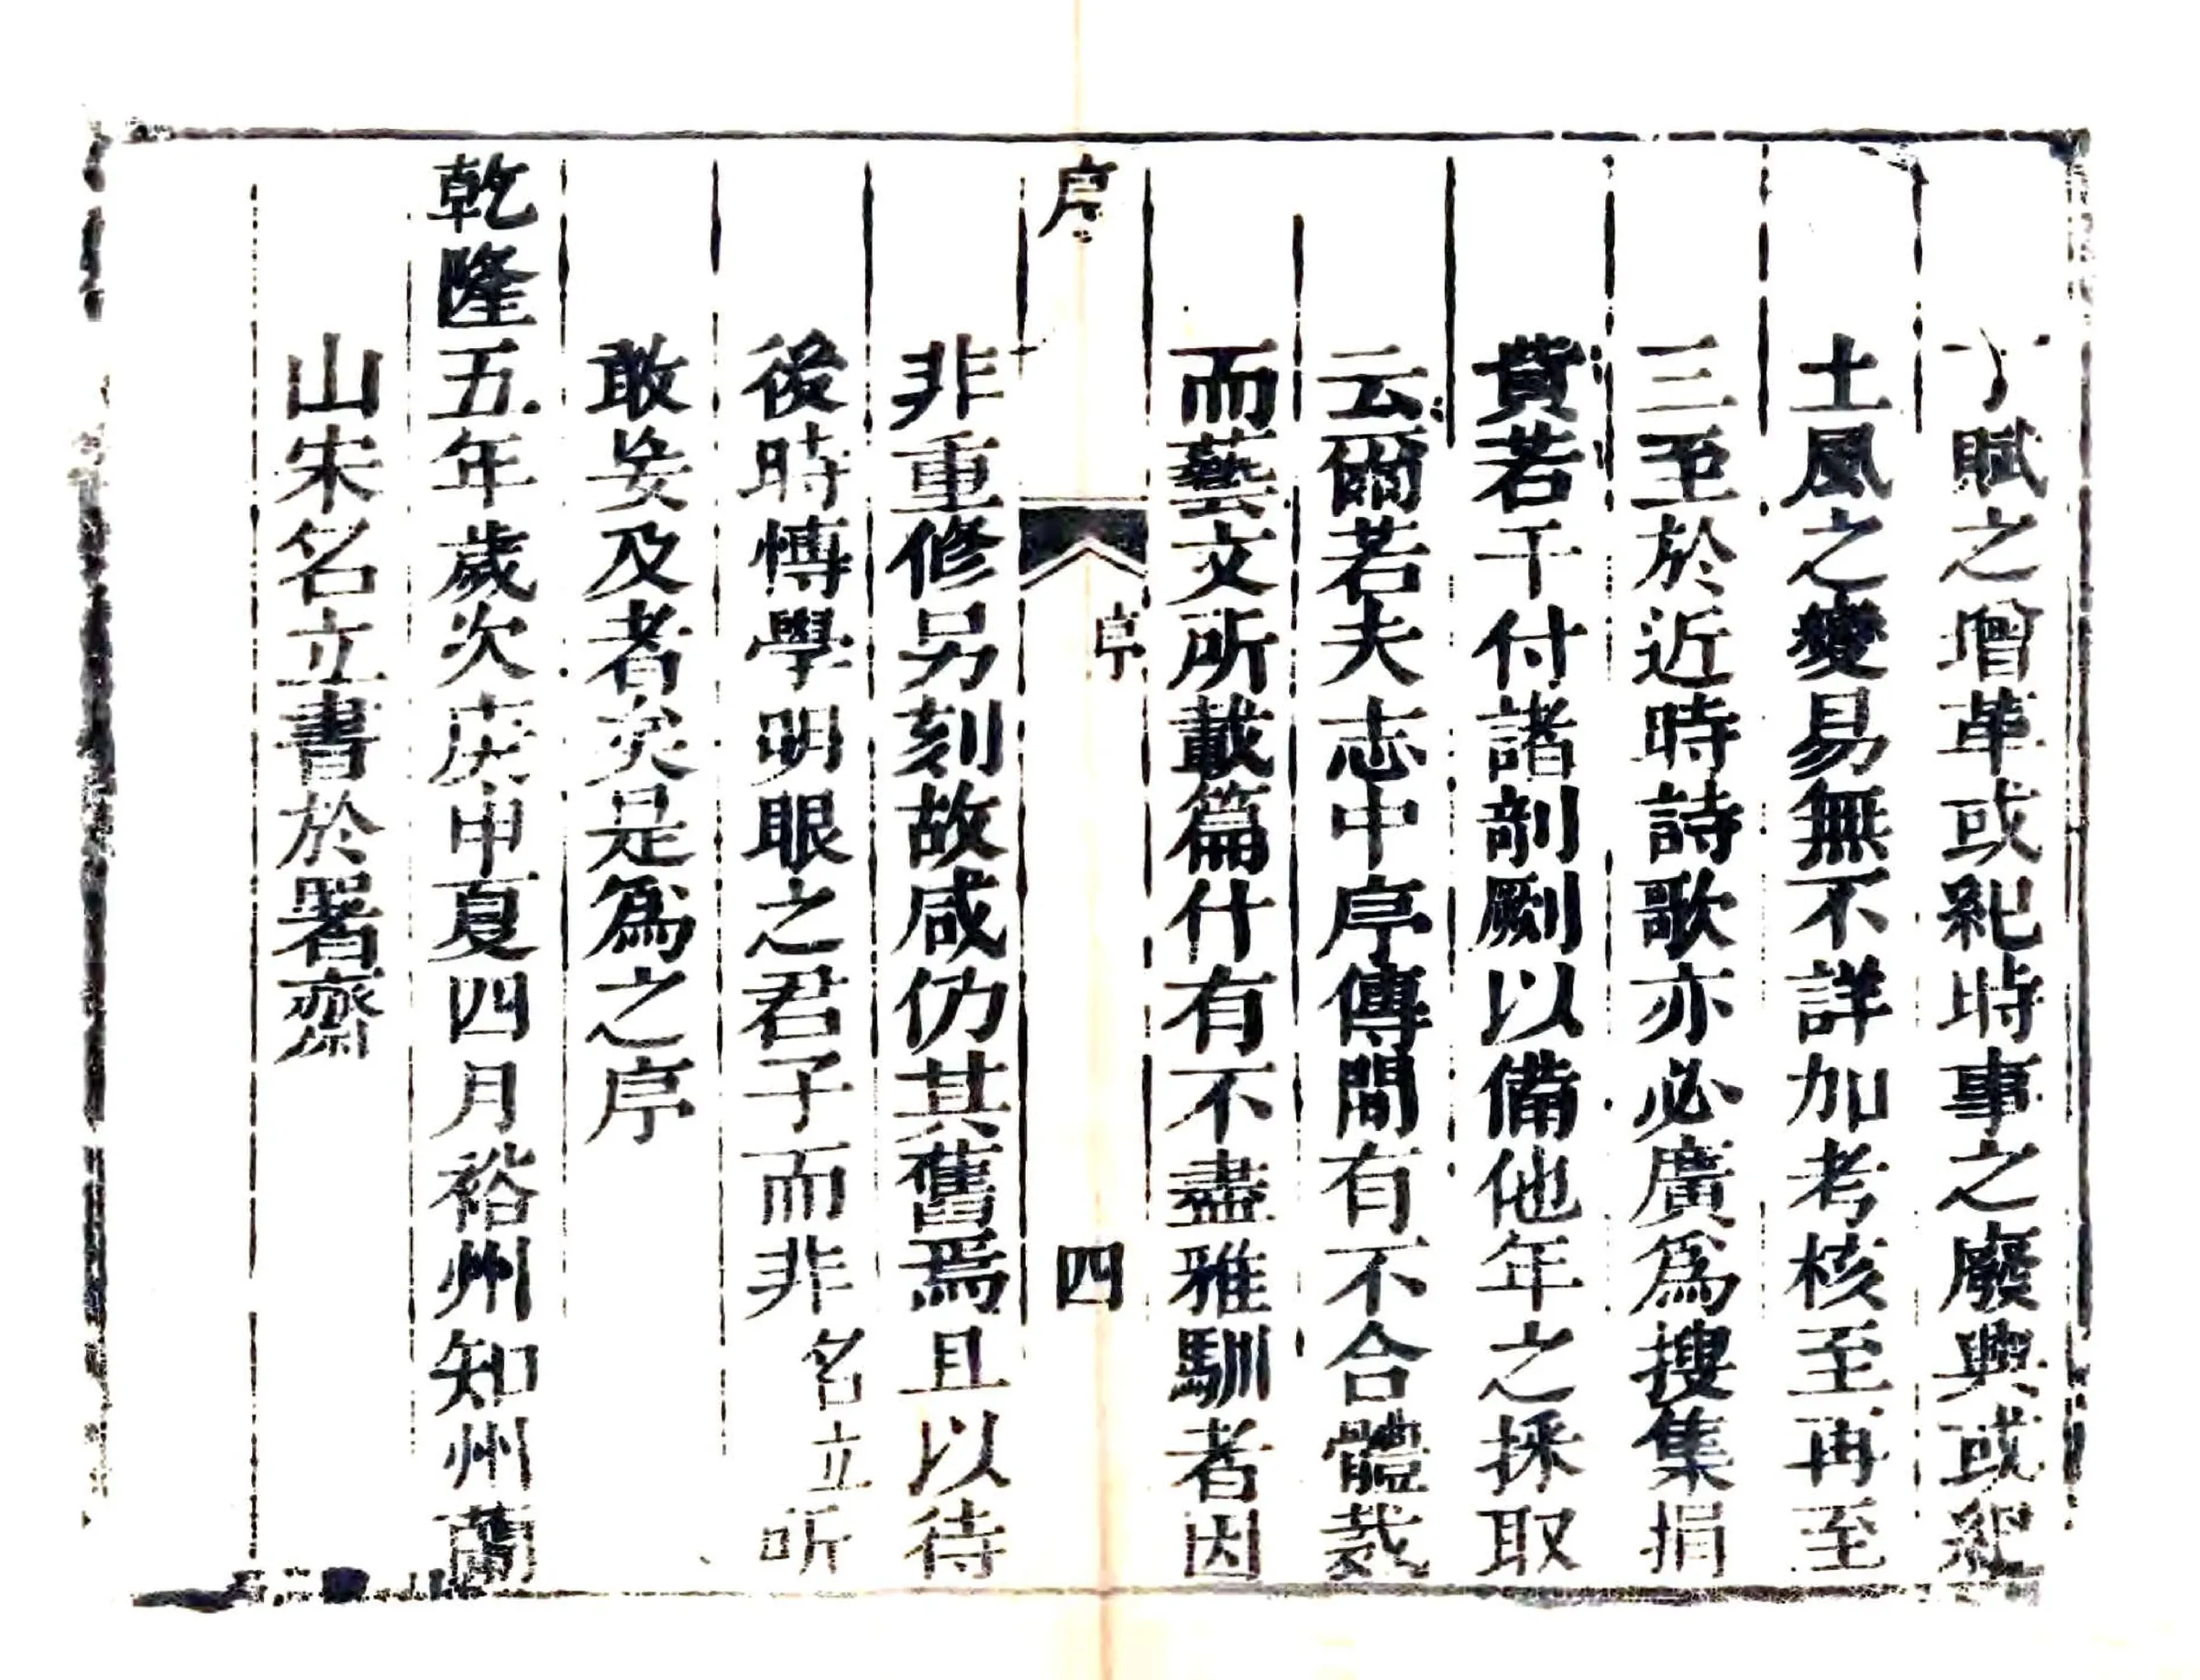 丁賦之增革或紀時事之廢興或紀
土風之變易無不詳加考核至再至
三至於近時詩歌亦必廣爲搜集捐
貲若干付諸剞劂以備他年之採取
云爾若夫志中序傳間有不合體裁
而藝文所載篇什有不盡雅馴者因
序
序
四
非重修另刻故咸仍其舊焉且以待
後時博學明眼之君子而非名立所
敢妄及者矣是爲之序
乾隆五年歲次庚申夏四月裕州知州蘭
山宋名立書於署齋